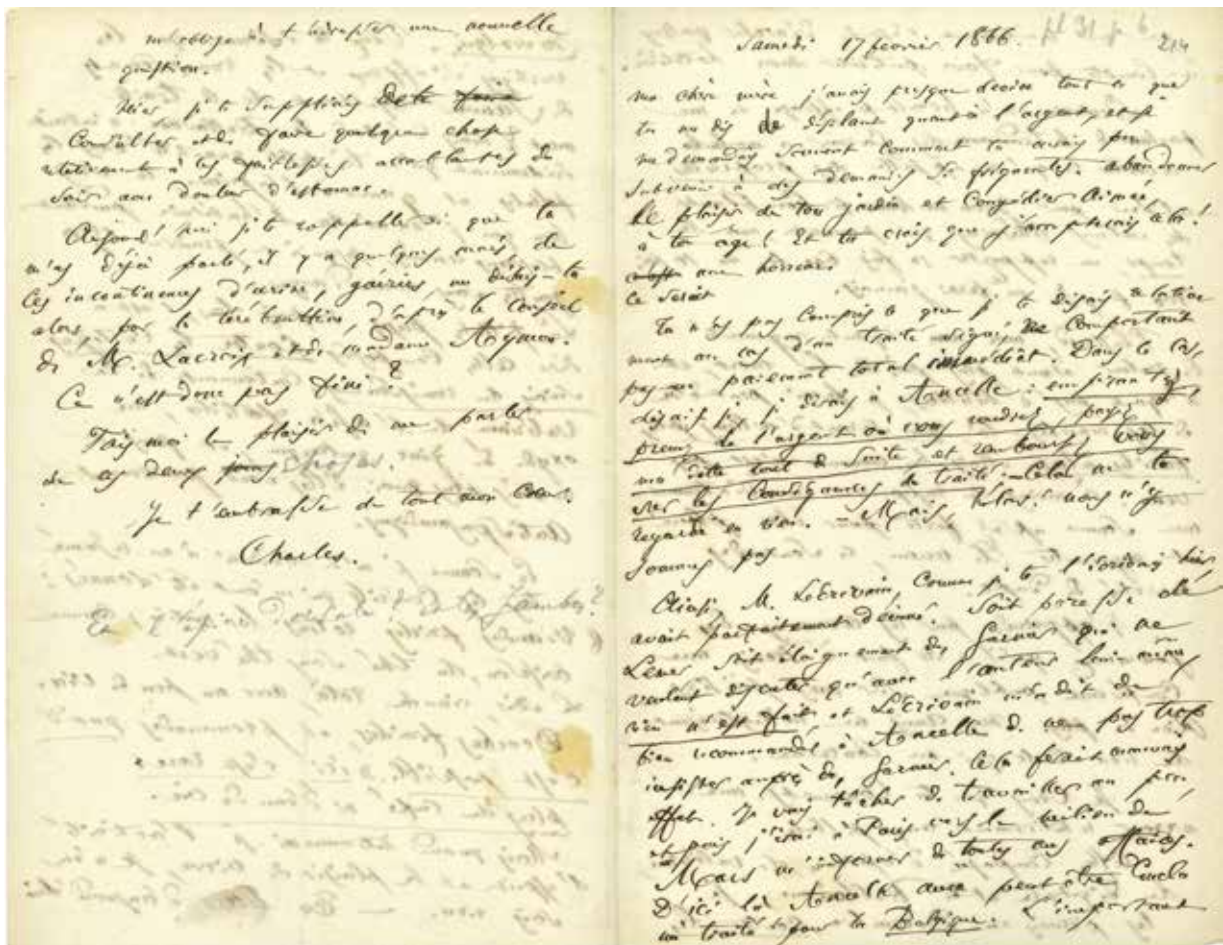 m'oblige à t'adresser une nouvelle
question.
Hier je te suppliais de te faire
consulter et de faire quelque chose
relativement à tes faiblesses accablantes du
soir aux douleurs d'estomac.
Aujourd'hui je te rappelle que tu
m'as déjà parlé, il y a quelques mois, de
ces incontinences d'urine, guéries, me disais-tu
alors, par la térébenthine, d'après le conseil
de M. Lacroix et de madame Aymon.
Ce n'est donc pas fini?
Fais moi le plaisir de me parler
de ces deux choses.
Je t'embrasse de tout mon cœur.
Charles.
Samedi 17 fevrier 1866.
214
ma chère mère j'avais presque deviné tout ce que
tu me dis de déplaisant quant à l'argent, et je
me demandais souvent comment tu avais pu
subvenir à des demandes si fréquentes. abandonner
le plaisir de ton jardin et congédier Aimée,
à ton âge! Et tu crois que j'accepterais cela!
ce serait une horreur.
Tu n'as pas compris ce que je te disais relative
ment au cas d'un traité signé, ne comportant
pas un paiement total immédiat. Dans le cas,
disais-je, je dirais à Ancelle: emprunte,
prenez de l'argent où vous voudrez, payez
ma dette tout de suite et remboursez vous
sur les conséquences du traité; – Cela ne te
regarde en rien. – Mais, hélas! nous n'y
sommes pas
Ainsi, M. Lécrivain, comme je te l'écrivais hier,
avait parfaitement deviné. Soit paresse de
Lemer soit éloignement des Garnier qui ne
veulent discuter qu'avec l'auteur lui-même,
rien n'est fait, et Lécrivain m'a dit de
bien recommander à Ancelle de ne pas trop
insister auprès des Garnier. Cela ferait mauvais
effet. Je vais tâcher de travailler un peu,
et puis j'irai à Paris vers le milieu de
Mars m'informer de toutes mes affaires.
D'ici là Ancelle aura peut être conclu
un traité pour la Belgique. L'important